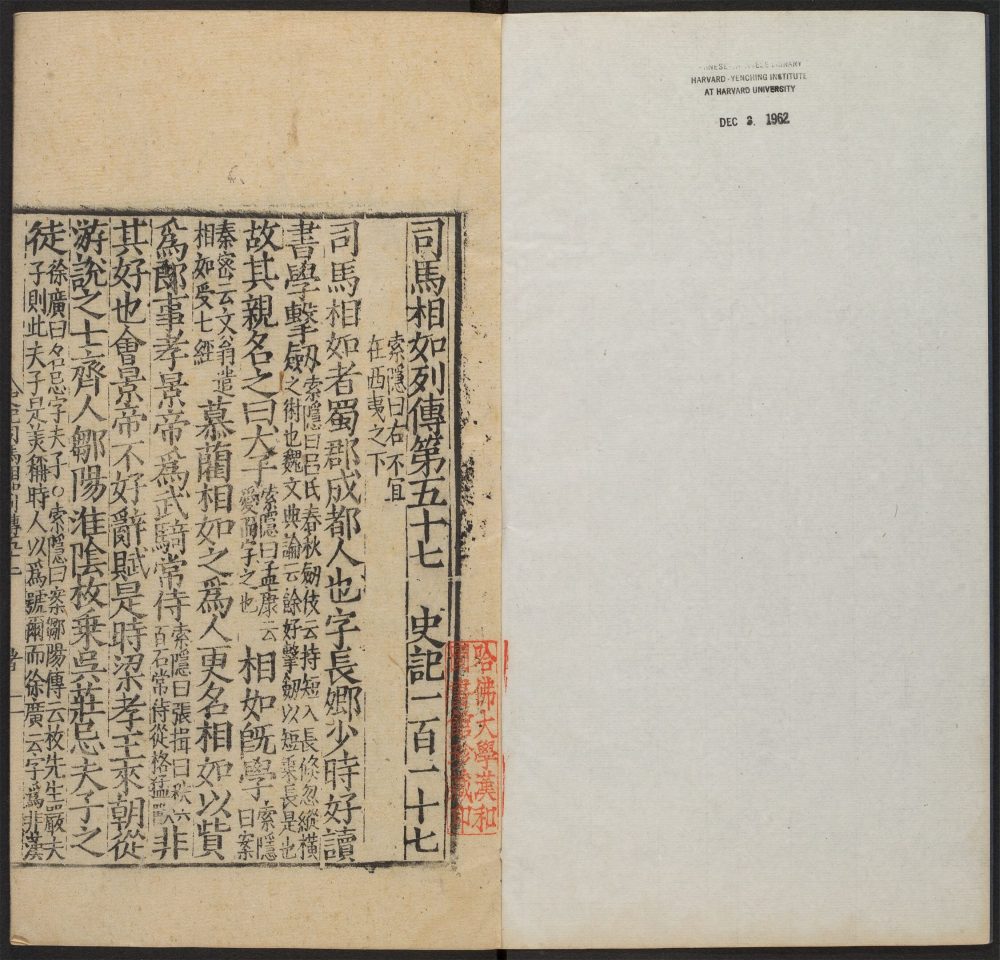 HARVARD-YENCHING INSTITUTE
AT HARVARD UNIVERSITY
DEC 3. 1962
哈佛大學漢和
圖書館珍藏印
司馬相如列傳第五十七 史記一百一十七
索隱曰右不宜
在西夷之下
司馬相如者蜀郡成都人也字長卿少時好讀
書學擊劍索隱曰呂氏春秋劒伎云持短入長倏忽縱橫
之術也魏文典論云余好擊劒以短乘長是也
故其親名之曰犬子索隱曰孟康云
愛而字之也相如旣學索隱
曰案
秦宓云文翁遣
相如受七經慕藺相如之爲人更名相如以貲
爲郎事孝景帝爲武騎常侍索隱曰張揖曰秩六
百石常侍從格猛獸非
其好也會景帝不好辭賦是時梁孝王來朝從
游說之士齊人鄒陽淮陰枚乘吳莊忌夫子之
徒徐廣曰名忌字夫子○索隱曰案鄒陽傳云枚先生嚴夫
子則此夫子是美稱時人以爲號爾而徐廣云字爲非漢